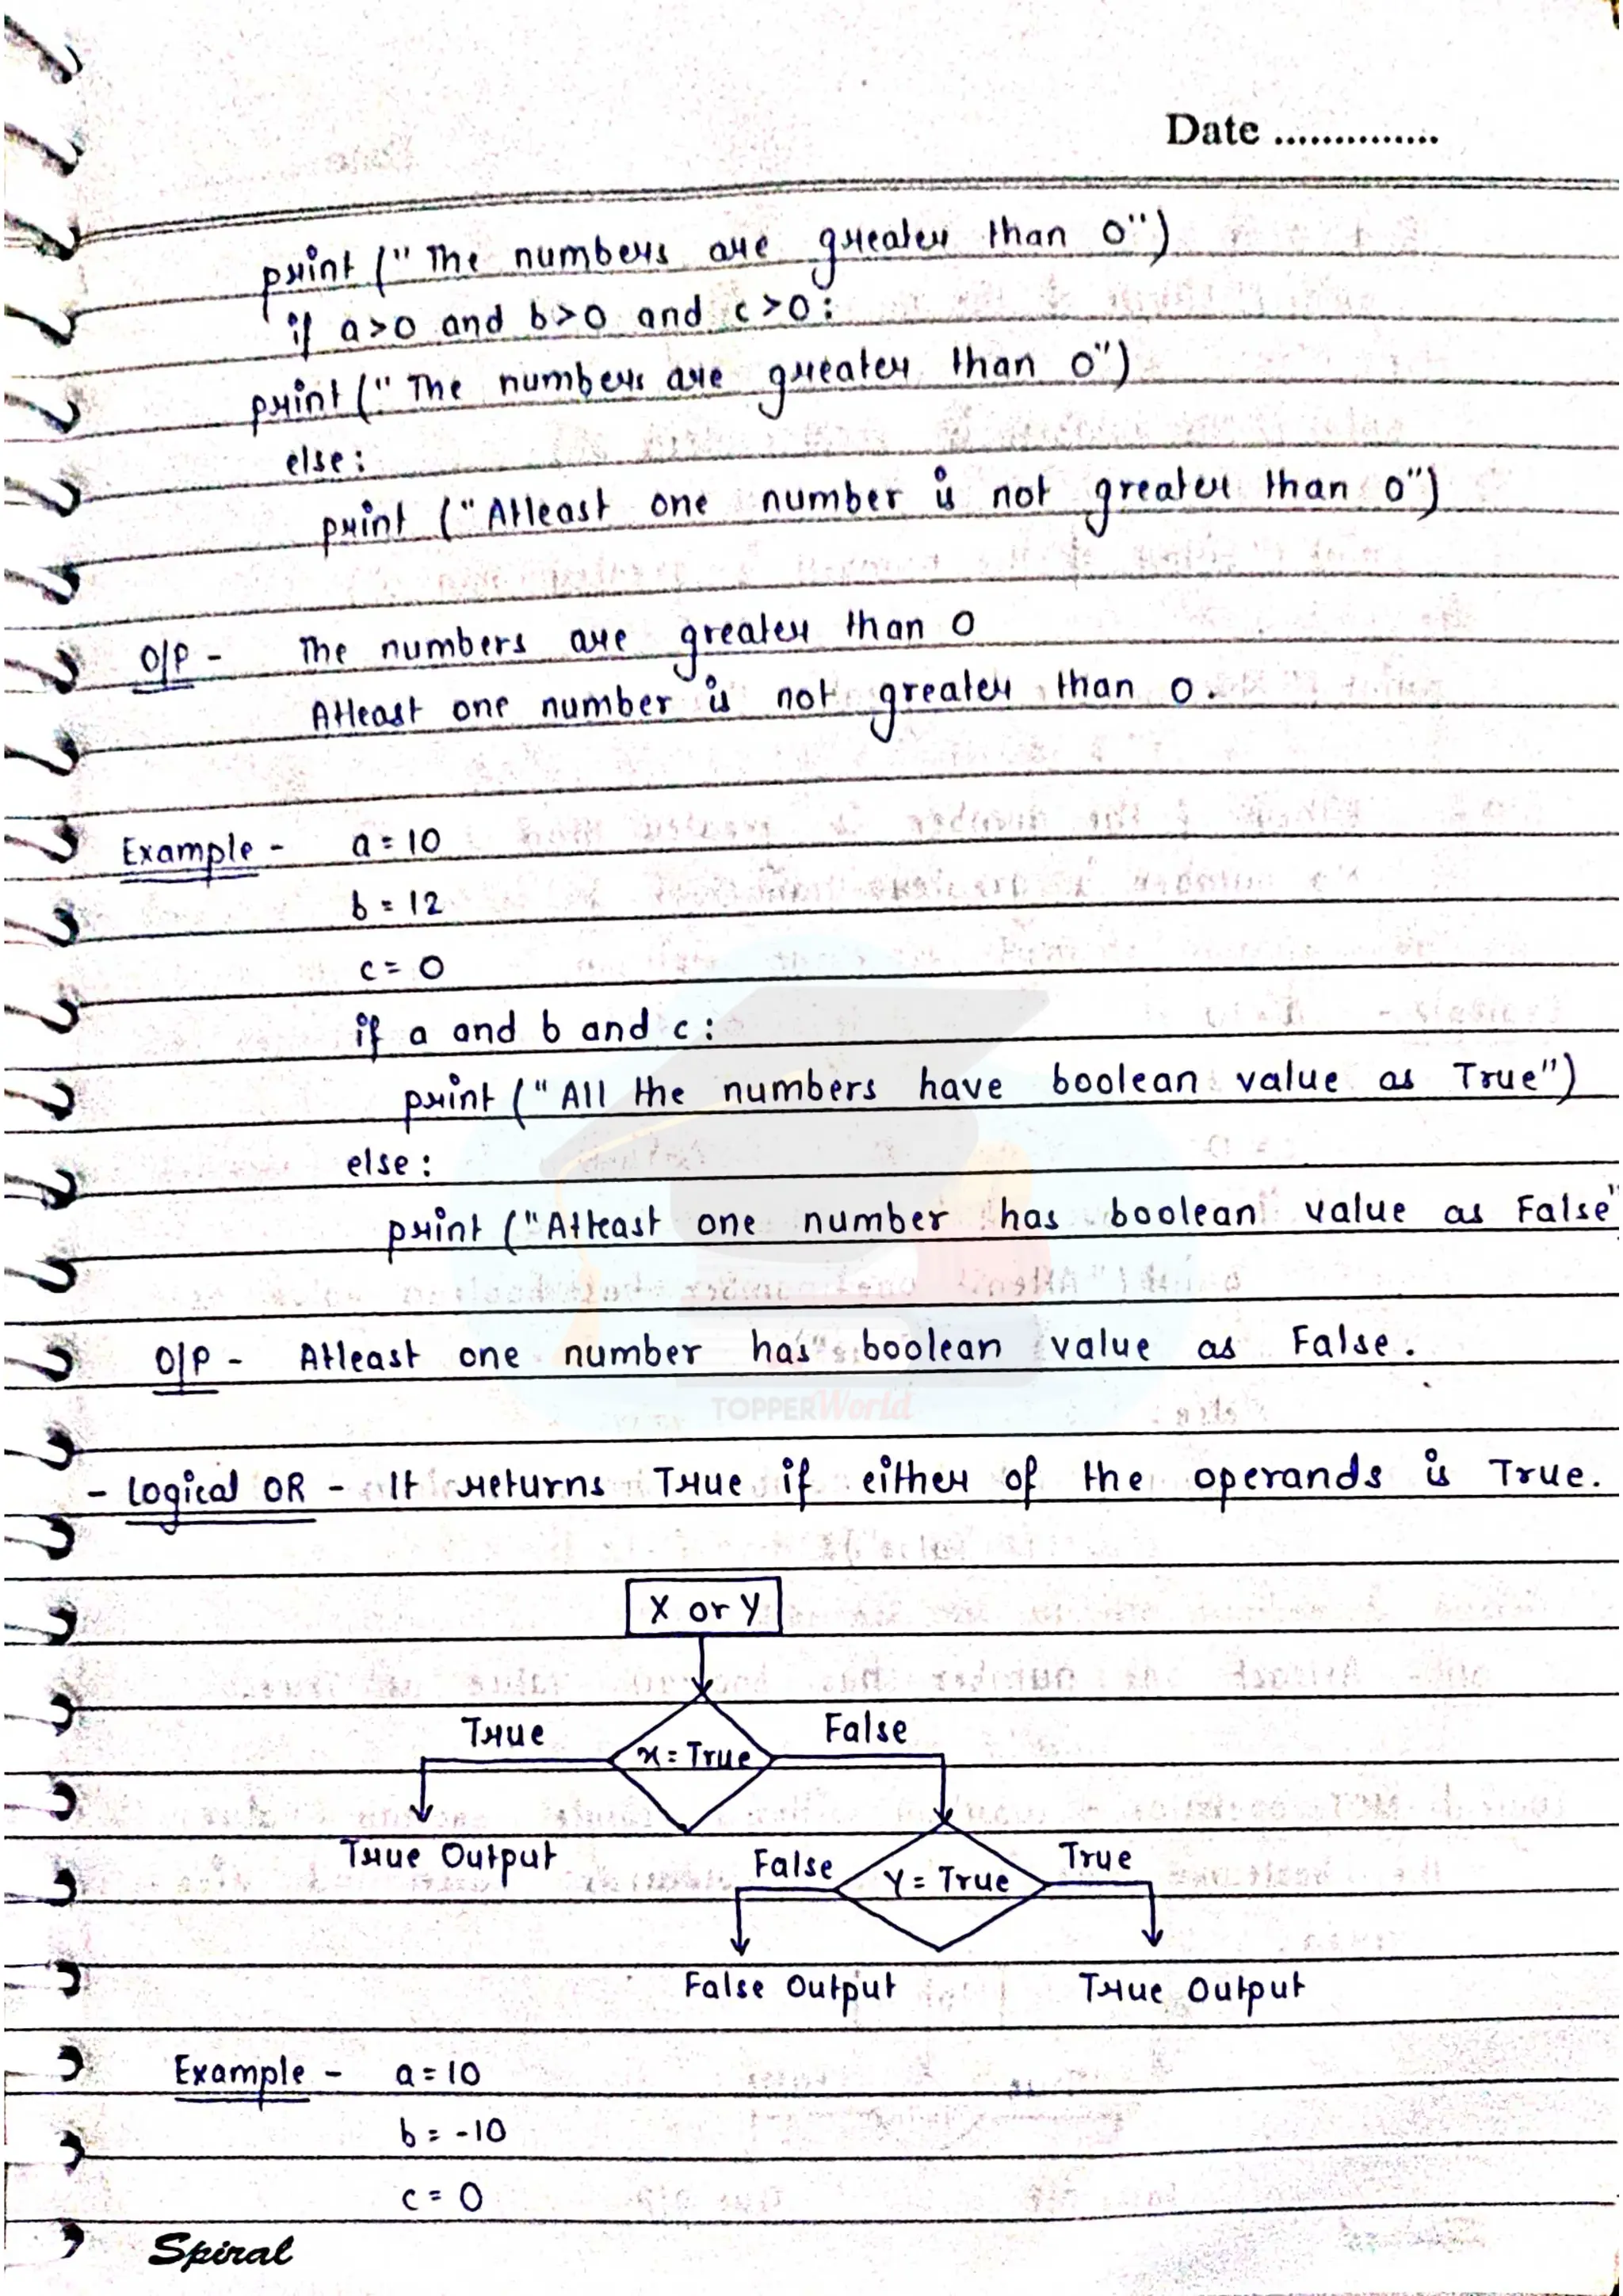 Date ..............
print (" The numbers are greater than 0")
if a>0 and b>0 and c>0:
print (" The numbers are greater than 0")
else:
print ("Atleast one number is not greater than 0")
O/P - The numbers are greater than 0
Atleast one number is not greater than 0.
Example - a = 10
b = 12
c = 0
if a and b and c:
print ("All the numbers have boolean value as True")
else:
print ("Atleast one number has boolean value as False"
O/P - Atleast one number has boolean value as False.
TOPPERWorld
- Logical OR - It returns True if either of the operands is True.
X or Y
True False
x = True
True Output
False True
Y = True
False Output True Output
Example - a = 10
b = -10
c = 0
Spiral